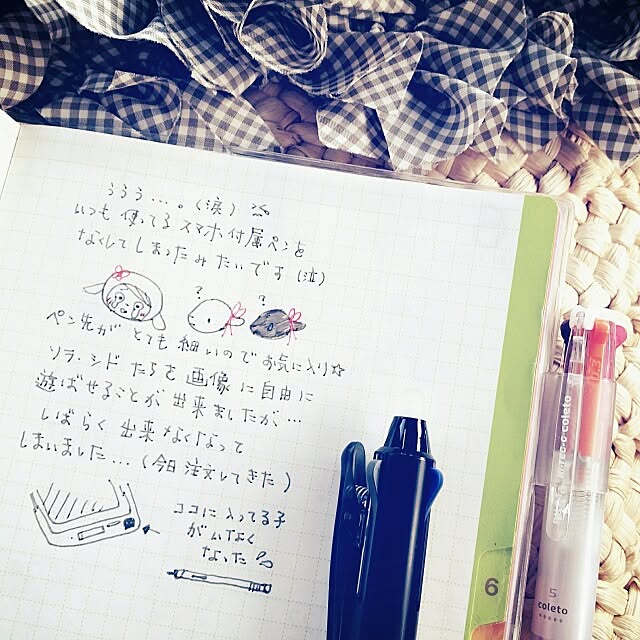 うろう...。(涙)
いつも使ってるスマホ付属ペンを
なくしてしまったみたいです(泣)
? ?
ペン先がとても細いのでお気に入り☆
ソラ・シドたちを画像に自由に
遊ばせることが出来ましたが...
しばらく出来なくなって
しまいました...(今日注文してきた)
ココに入ってる子
がいなく
なった
6
coleto
5
coleto